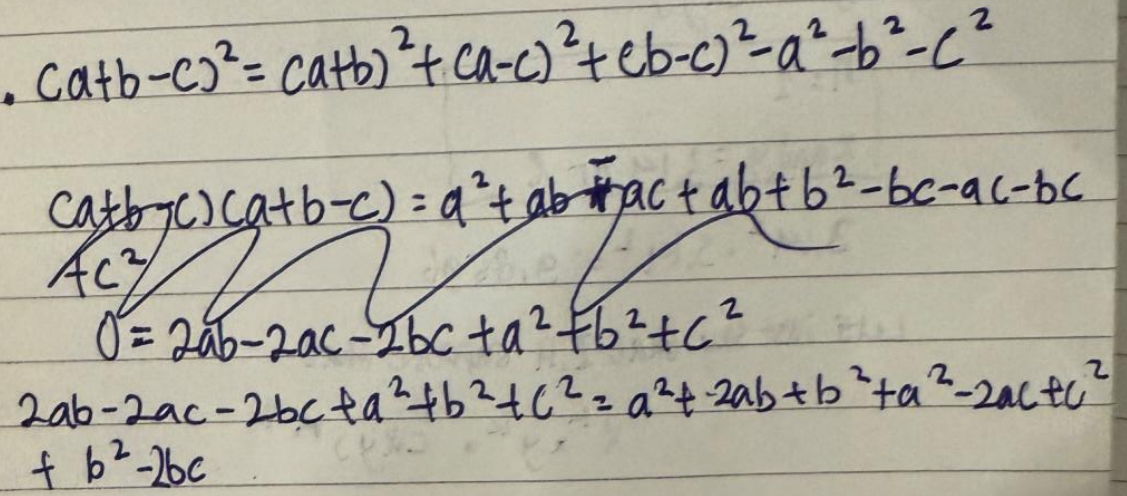 . (a+b-c)² = (a+b)² + (a-c)² + (b-c)² - a² - b² - c²
(a+b-c)(a+b-c) = a² + ab - ac + ab + b² - bc - ac - bc
+c²
0 = 2ab - 2ac - 2bc + a² + b² + c²
2ab - 2ac - 2bc + a² + b² + c² = a² + 2ab + b² + a² - 2ac + c²
+ b² - 2bc